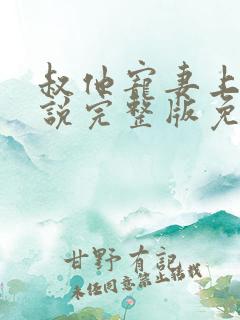 叔他寵妻上
說完整版免
甘野有記
未经同意禁止转载